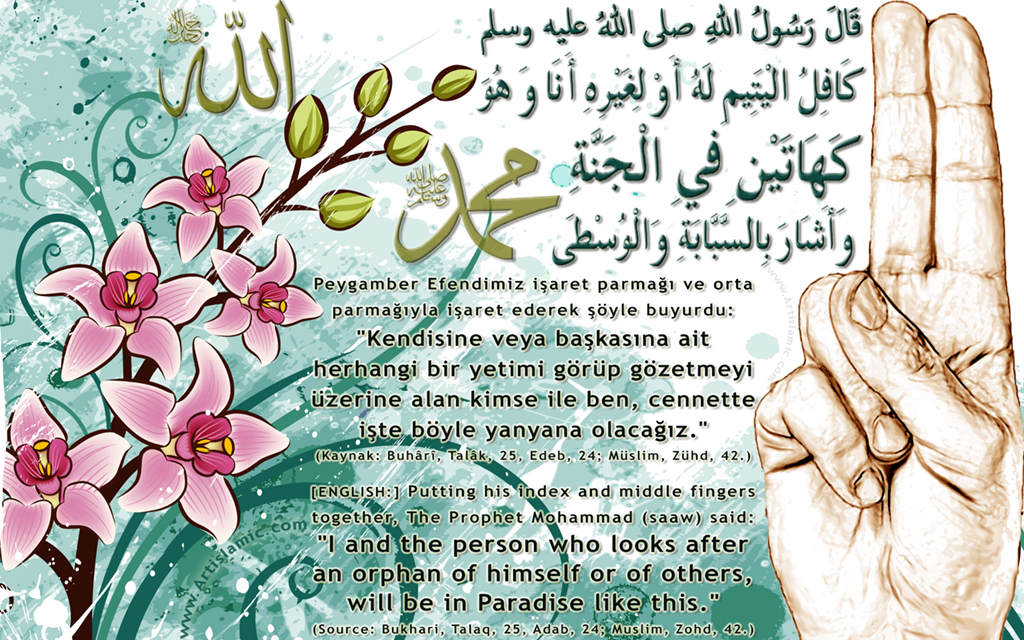 الله
جل جلاله
قَالَ رَسُولُ اللهِ صلى اللهُ عليه وسلم
كَافِلُ الْيَتِيمِ لَهُ أَوْ لِغَيْرِهِ أَنَا وَ هُوَ
كَهَاتَيْنِ فِي الْجَنَّةِ
وَأَشَارَ بِالسَّبَّابَةِ وَالْوُسْطَى
محمد
صلى الله عليه وسلم
Peygamber Efendimiz işaret parmağı ve orta
parmağıyla işaret ederek şöyle buyurdu:
"Kendisine veya başkasına ait
herhangi bir yetimi görüp gözetmeyi
üzerine alan kimse ile ben, cennette
işte böyle yanyana olacağız."
(Kaynak: Buhârî, Talâk, 25, Edeb, 24; Müslim, Zühd, 42.)
[ENGLISH:] Putting his index and middle fingers
together, The Prophet Mohammad (saaw) said:
"I and the person who looks after
an orphan of himself or of others,
will be in Paradise like this."
(Source: Bukhari, Talaq, 25, Adab, 24; Muslim, Zohd, 42.)
www.Artislamic.com
www.Artislamic.com